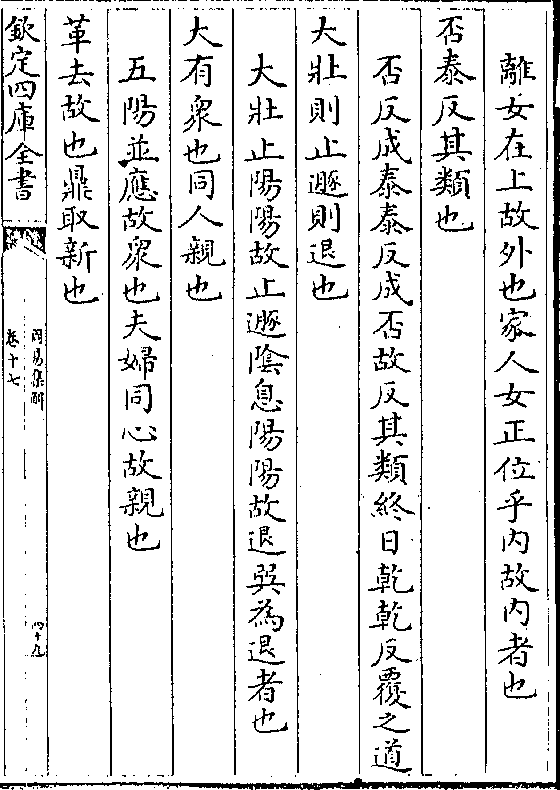 離女在上故外也家人女正位乎内故内者也
否泰反其類也
否反成泰泰反成否故反其類終日乾乾反覆之道
大壯則止遯則退也
大壯止陽陽故止遯陰息陽陽故退巽為退者也
大有衆也同人親也
五陽並應故衆也夫婦同心故親也
革去故也鼎取新也
欽定四庫全書
周易集解
卷十七
四十九